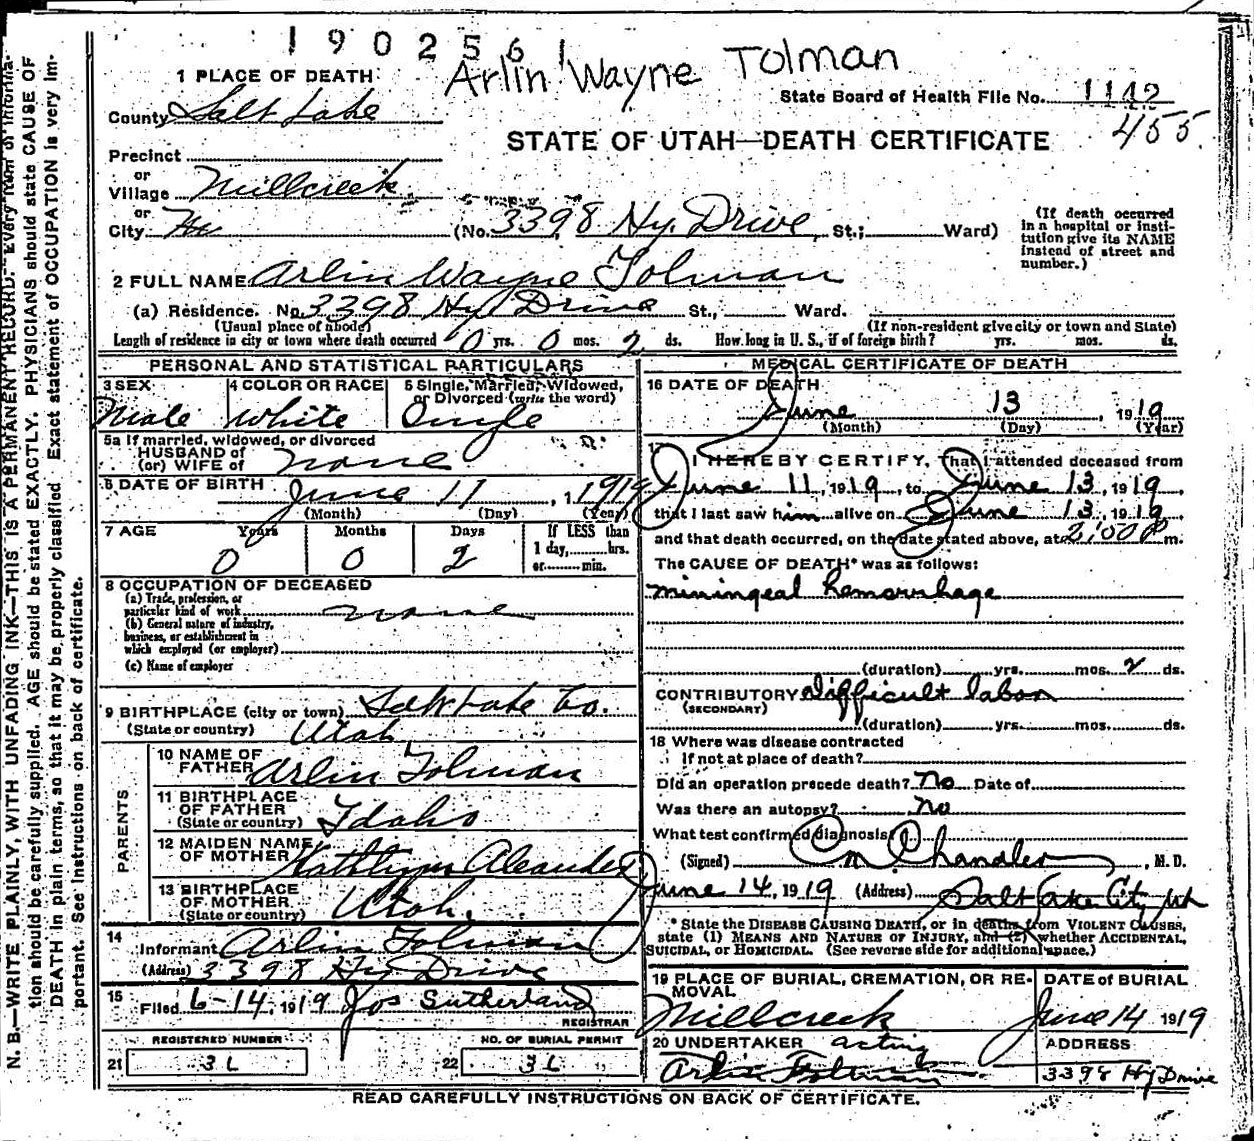 190256 1
Arlin Wayne Tolman
1 PLACE OF DEATH
State Board of Health File No. 1142
455
County Salt Lake
STATE OF UTAH—DEATH CERTIFICATE
Precinct
or
Village Millcreek
or
City (No. 3398 Hy. Drive, St.; Ward)
(If death occurred in a hospital or institution give its NAME instead of street and number.)
2 FULL NAME Arlin Wayne Tolman
(a) Residence. No. 3398 Hy Drive St., Ward.
(Usual place of abode) (If non-resident give city or town and State)
Length of residence in city or town where death occurred 0 yrs. 0 mos. 2 ds. How long in U. S., if of foreign birth? yrs. mos. ds.
PERSONAL AND STATISTICAL PARTICULARS
3 SEX Male
4 COLOR OR RACE White
5 Single, Married, Widowed, or Divorced (write the word) Single
5a If married, widowed, or divorced
HUSBAND of
(or) WIFE of none
6 DATE OF BIRTH June 11, 1919
(Month) (Day) (Year)
7 AGE Years Months Days If LESS than
1 day, hrs.
or min.
0 0 2
8 OCCUPATION OF DECEASED
(a) Trade, profession, or
particular kind of work none
(b) General nature of industry,
business, or establishment in
which employed (or employer)
(c) Name of employer
9 BIRTHPLACE (city or town) Salt Lake Co.
(State or country) Utah
PARENTS
10 NAME OF
FATHER Arlin Tolman
11 BIRTHPLACE
OF FATHER
(State or country) Idaho
12 MAIDEN NAME
OF MOTHER Kathlynn Aleander
13 BIRTHPLACE
OF MOTHER
(State or country) Utah.
14
Informant Arlin Tolman
(Address) 3398 Hy Drive
15
Filed 6-14, 1919 Jos Sutherland
REGISTRAR
REGISTERED NUMBER NO. OF BURIAL PERMIT
21 3L 22 3L
MEDICAL CERTIFICATE OF DEATH
16 DATE OF DEATH
June 13, 1919
(Month) (Day) (Year)
17
I HEREBY CERTIFY, that I attended deceased from
June 11, 1919, to June 13, 1919,
that I last saw him alive on June 13, 1919,
and that death occurred, on the date stated above, at 2:00 P m.
The CAUSE OF DEATH* was as follows:
miningeal hemorrhage
(duration) yrs. mos. 2 ds.
CONTRIBUTORY difficult labor
(SECONDARY)
(duration) yrs. mos. ds.
18 Where was disease contracted
If not at place of death?
Did an operation precede death? No Date of
Was there an autopsy? No
What test confirmed diagnosis?
(Signed) C M Chandler, M. D.
June 14, 1919 (Address) Salt Lake City, Ut
* State the DISEASE CAUSING DEATH, or in deaths from VIOLENT CAUSES,
state (1) MEANS AND NATURE OF INJURY, and (2) whether ACCIDENTAL,
SUICIDAL, or HOMICIDAL. (See reverse side for additional space.)
19 PLACE OF BURIAL, CREMATION, OR REMOVAL
Millcreek
DATE of BURIAL
June 14 1919
20 UNDERTAKER acting
Arlin Tolman
ADDRESS
3398 Hy Drive
READ CAREFULLY INSTRUCTIONS ON BACK OF CERTIFICATE.
N. B.—WRITE PLAINLY, WITH UNFADING INK—THIS IS A PERMANENT RECORD. Every item of informa-
tion should be carefully supplied. AGE should be stated EXACTLY. PHYSICIANS should state CAUSE OF
DEATH in plain terms, so that it may be properly classified. Exact statement of OCCUPATION is very im-
portant. See instructions on back of certificate.